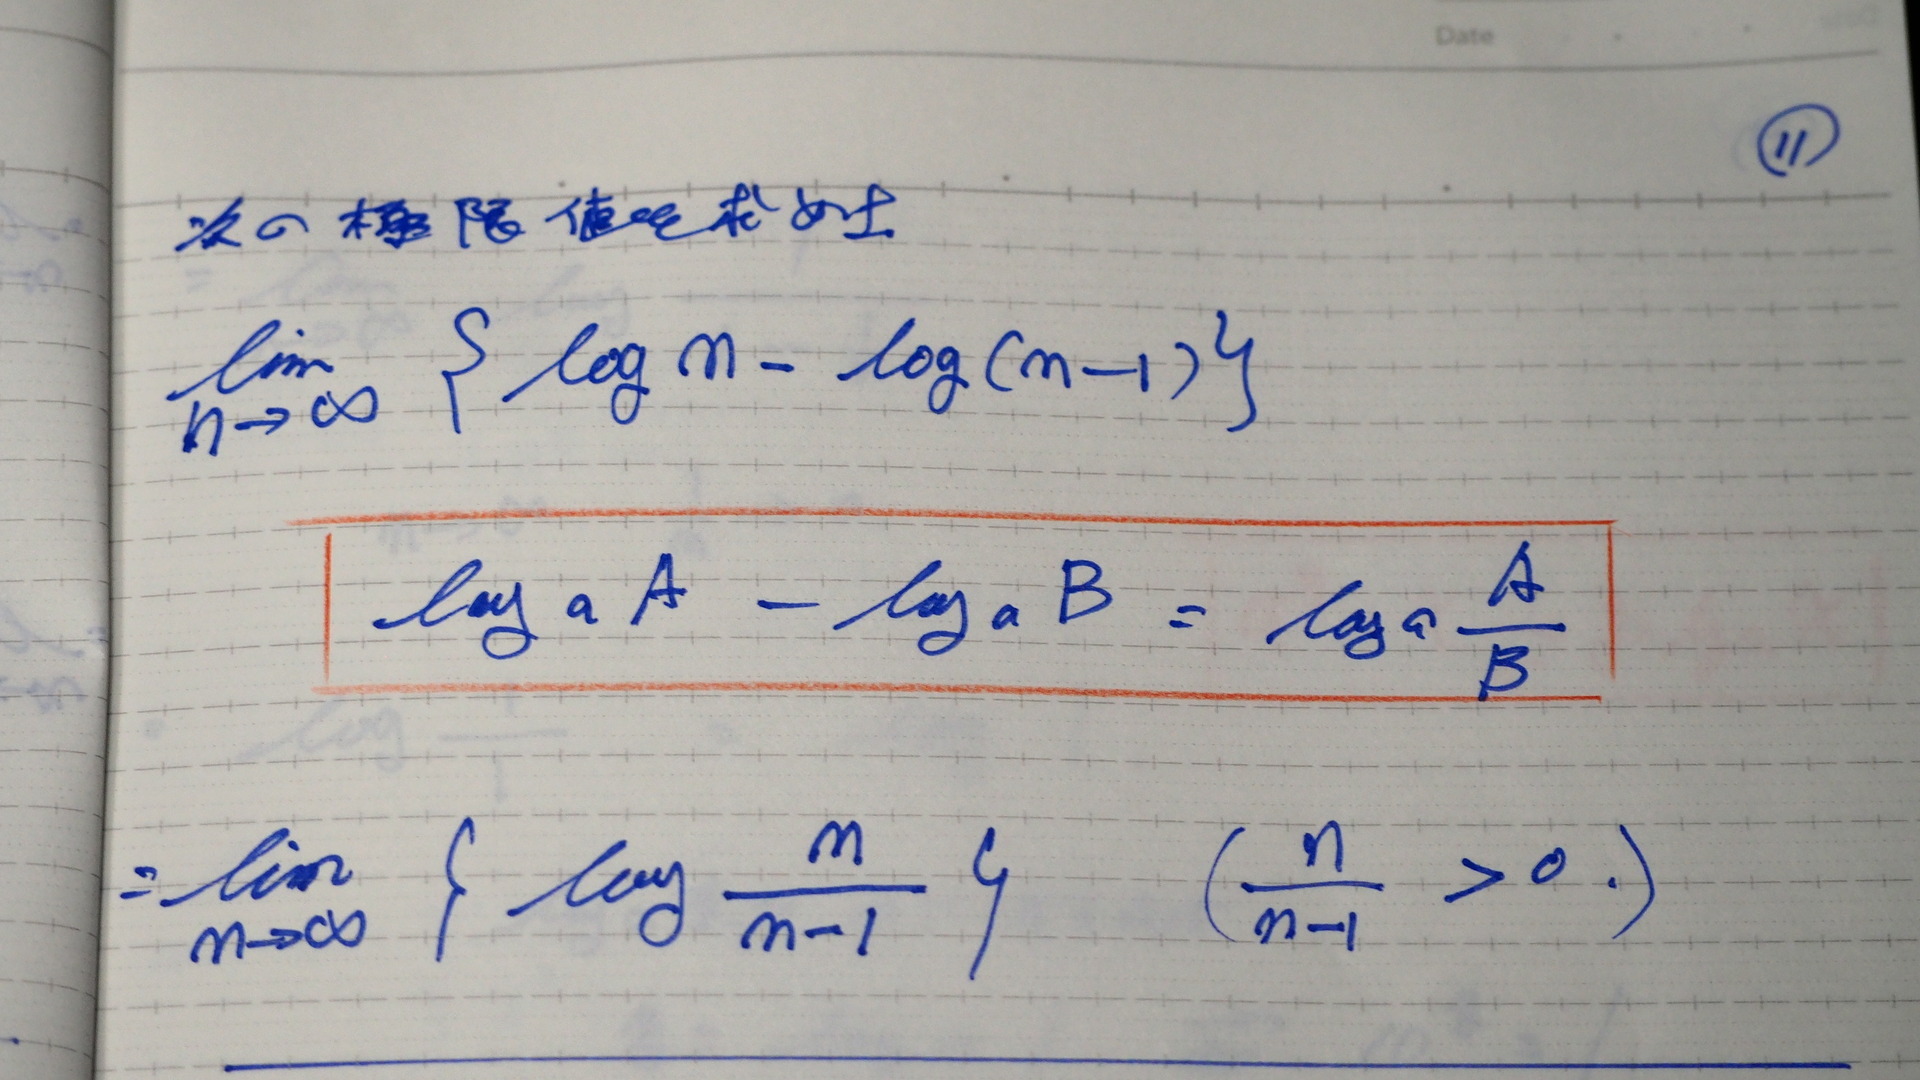 Date
⑪
次の極限値を求めよ
lim n→∞ { log n - log(n-1) }
log a A - log a B = log a A/B
= lim n→∞ { log n/(n-1) } ( n/(n-1) > 0 . )